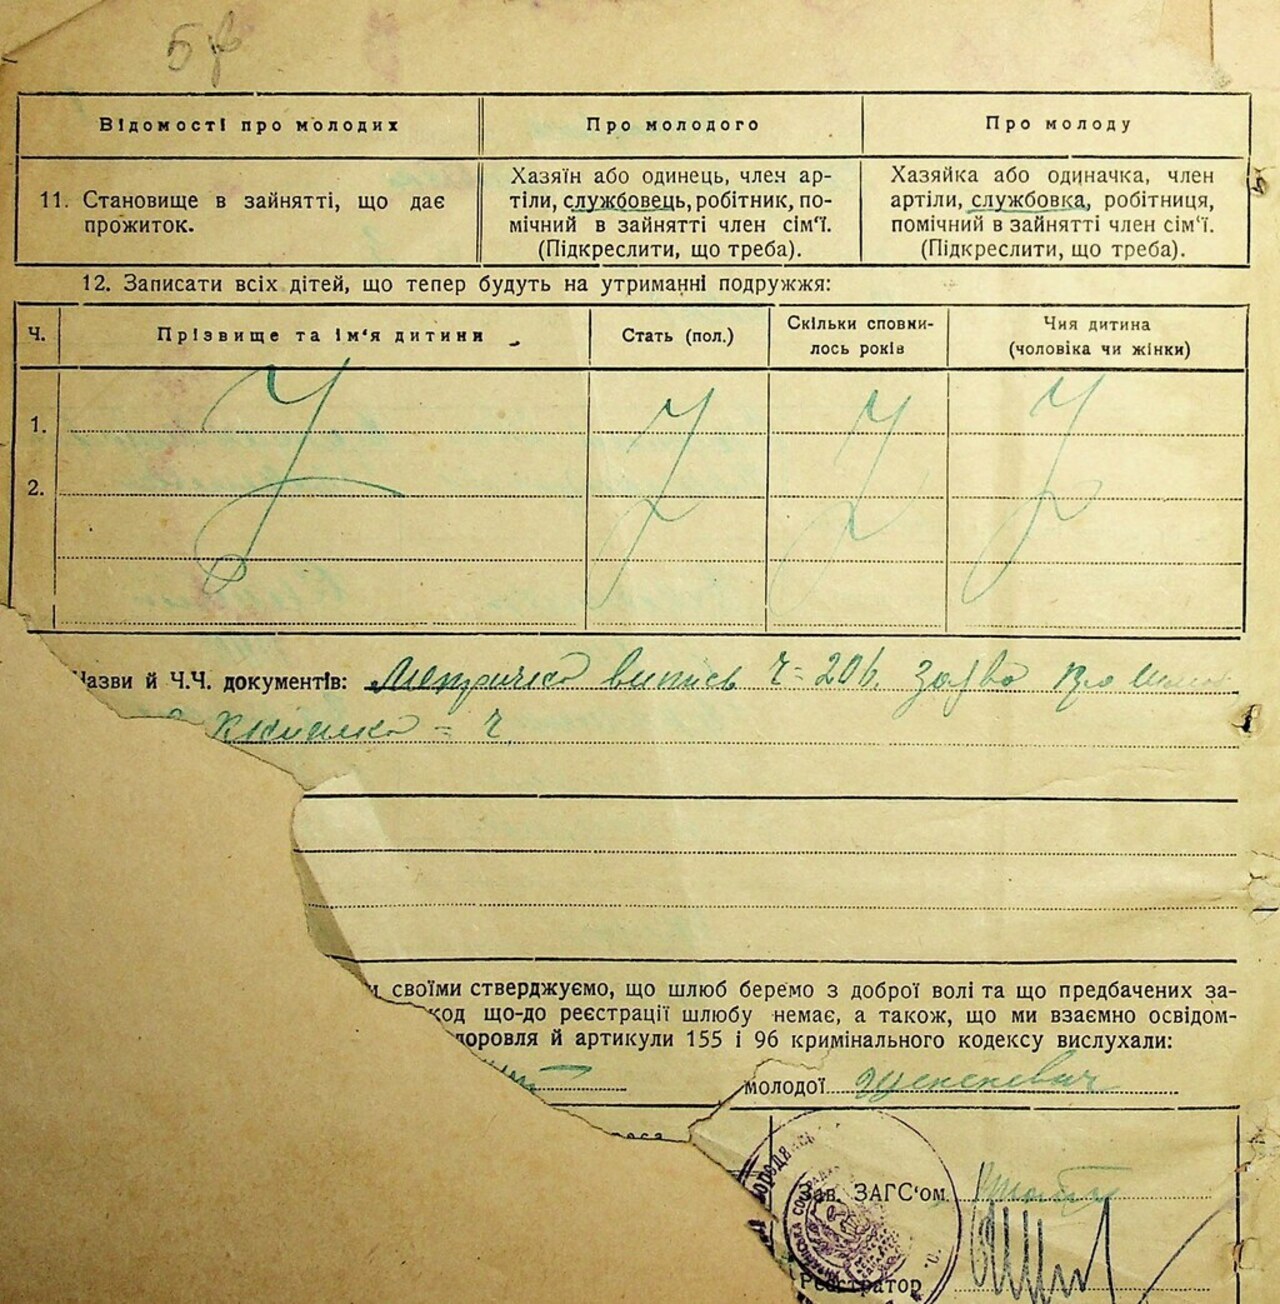 Відомості про молодих
Про молодого
Про молоду
11. Становище в зайнятті, що дає
прожиток.
Хазяїн або одинець, член ар-
тіли, службовець, робітник, по-
мічний в зайнятті член сім‘ї.
(Підкреслити, що треба).
Хазяйка або одиначка, член
артіли, службовка, робітниця,
помічний в зайнятті член сім‘ї.
(Підкреслити, що треба).
12. Записати всіх дітей, що тепер будуть на утриманні подружжя:
Ч.
Прізвище та ім‘я дитини
Стать (пол.)
Скільки сповни-
лось років
Чия дитина
(чоловіка чи жінки)
1.
2.
Назви й Ч.Ч. документів: Метрична випись Ч= 206. заява про
своїми стверджуємо, що шлюб беремо з доброї волі та що предбачених за-
код що-до реєстрації шлюбу немає, а також, що ми взаємно освідом-
доровля й артикули 155 і 96 кримінального кодексу вислухали:
молодої
Зав. ЗАГС‘ом
Реєстратор